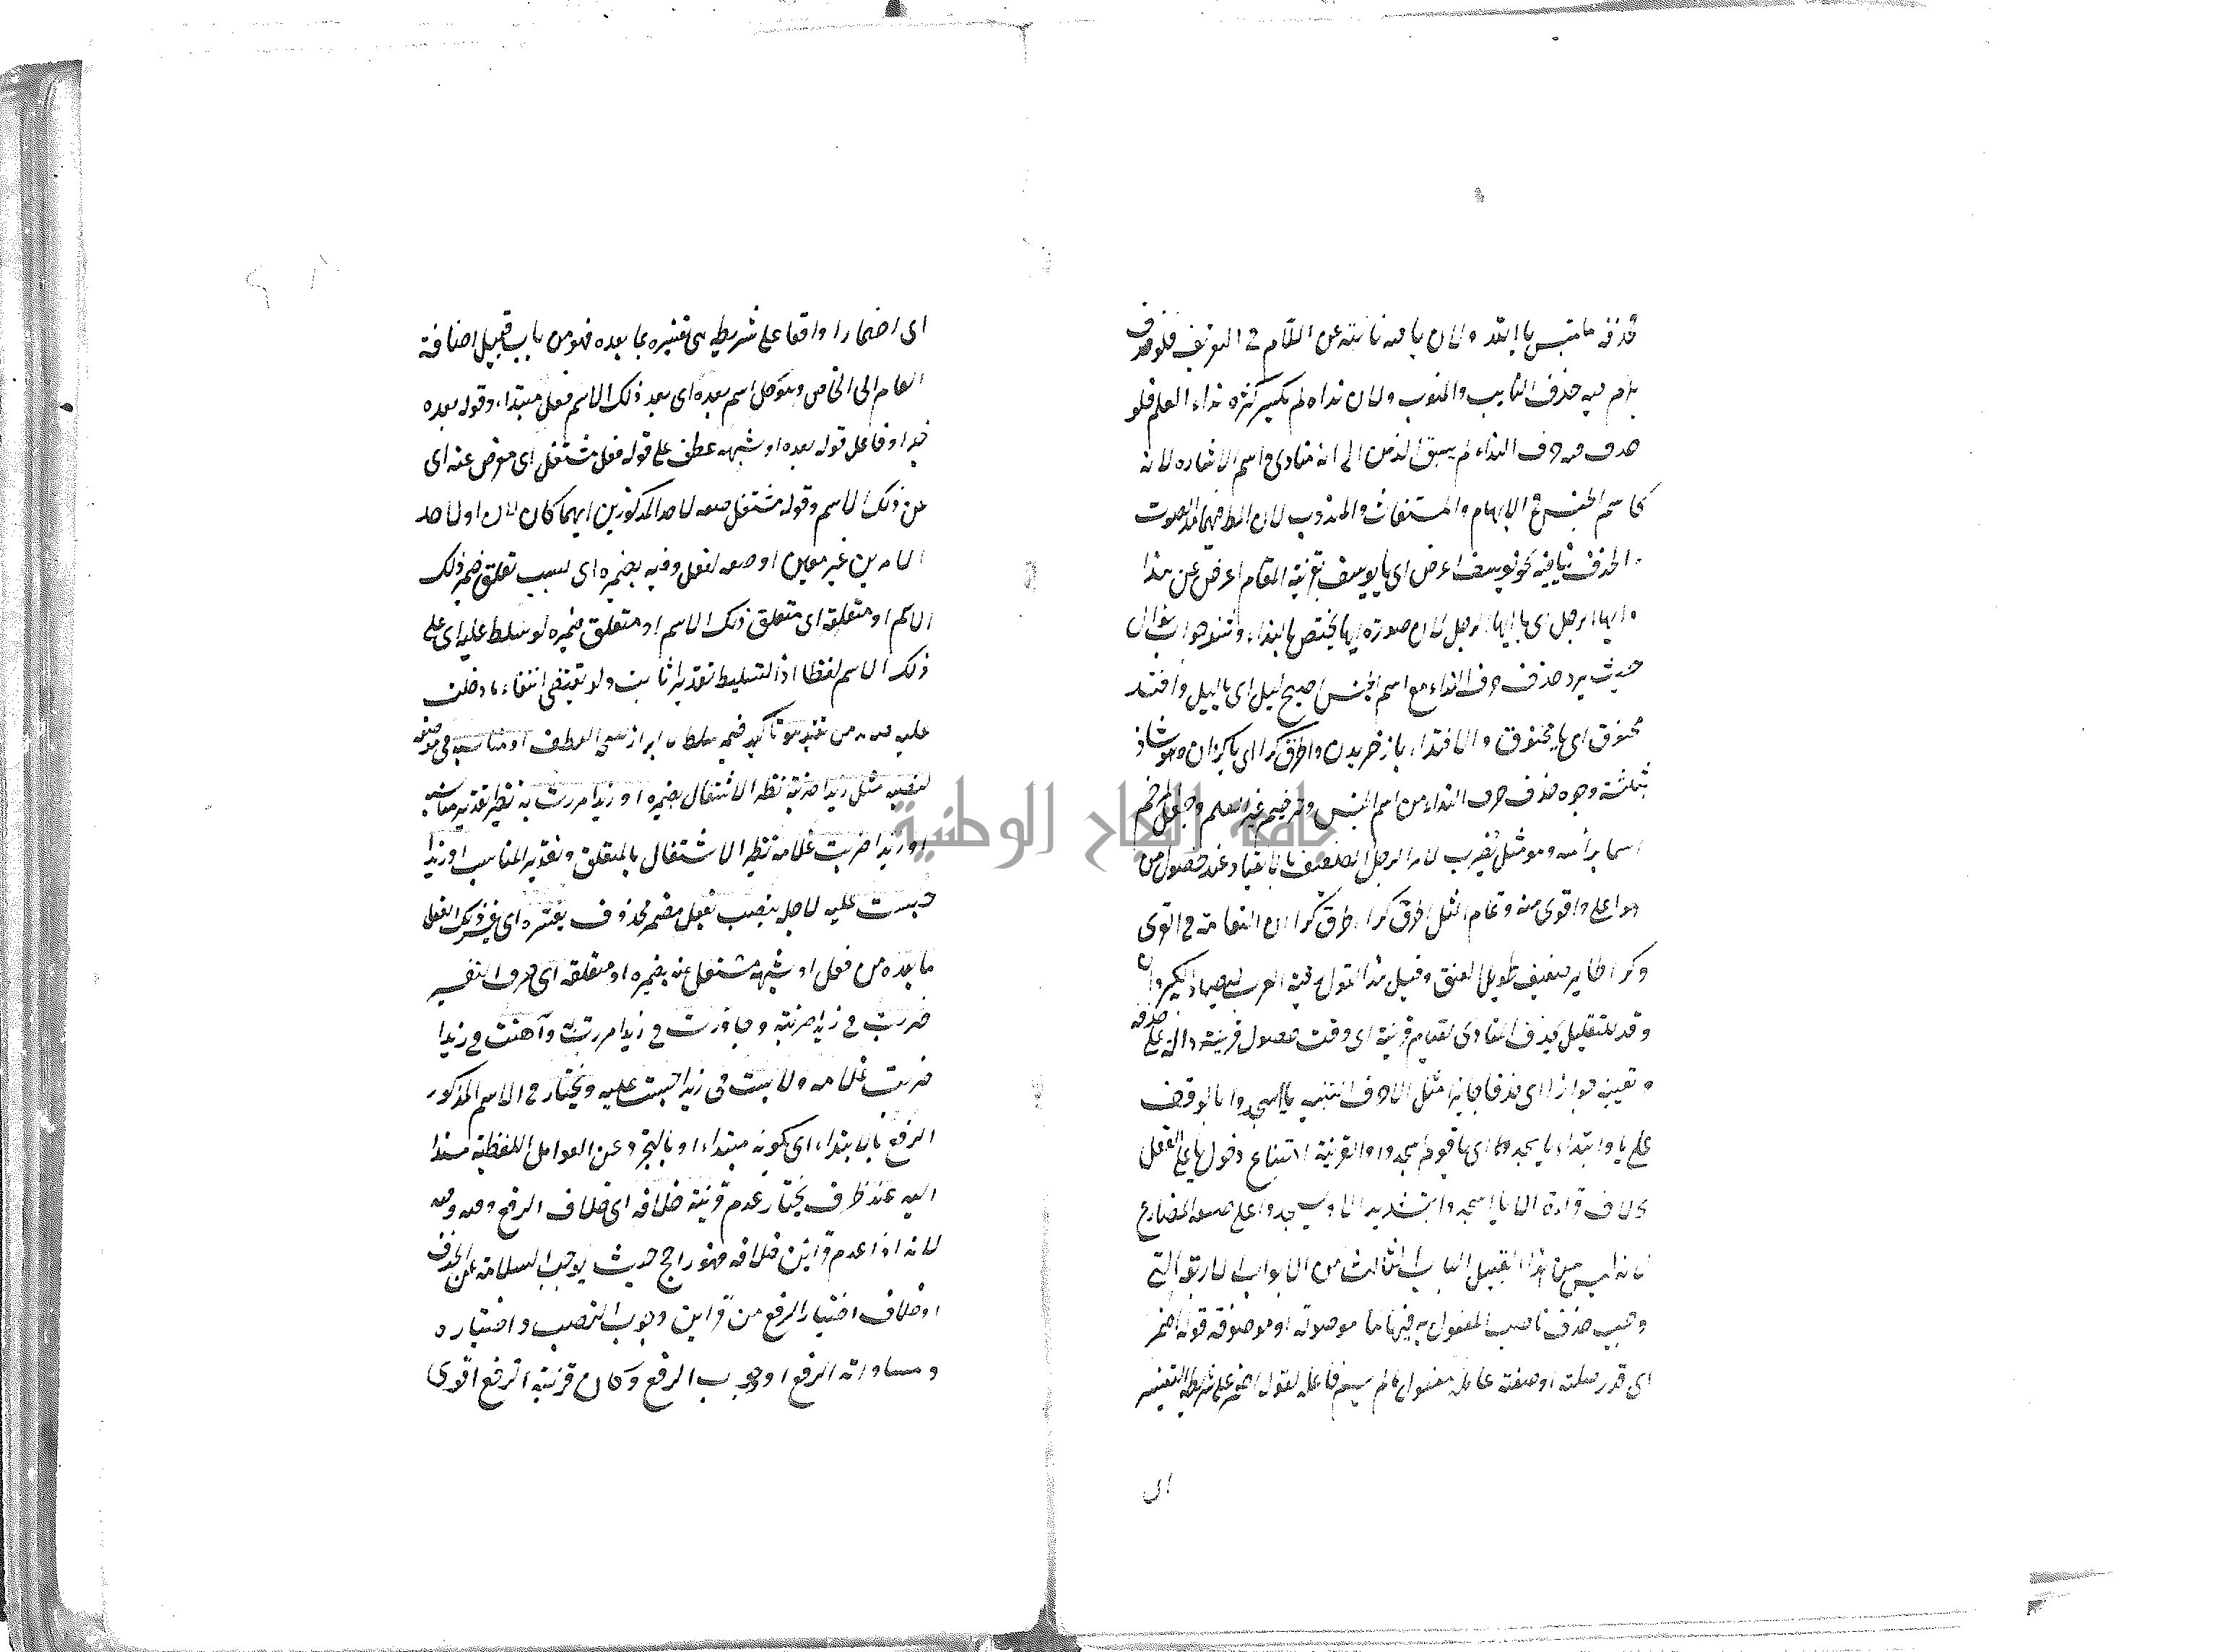 لان نداه لم يكثر كثرة نداء العلم فلو
حذف حرف النداء لم يسبق الذهن الى انه منادى واسم الاشارة لانه
كاسم الجنس في الابهام والمستغاث والمندوب لان المط فيهما مد الصوت
والحذف ينافيه نحو يوسف اعرض اى يا يوسف بقرينة المقام اعرض عن هذا
وايها الرجل اى يا ايها الرجل لان صورة ايها يختص بالنداء
حيث يرد حذف حرف النداء مع اسم الجنس اصبح ليل اى يا ليل وافتد
مخنوق اى يا مخنوق والافتداء باز خريدن واطرق كرا اى يا كروان وهو شاذ
بثلثة وجوه حذف حرف النداء من اسم الجنس وترخيم غير العلم وجعل المرخم
اسما برأسه وهو مثل يضرب
هو اعلى واقوى منه وتمام المثل اطرق كرا اطرق كرا ان النعامة في القرى
وكرا طاير ضعيف طويل العنق وقيل هذا القول رقية العرب
وقد للتقليل يحذف المنادى لقيام قرينة اى وقت حصول قرينة دالة على حذفه
وتعيينه جوازا اى حذفا جايزا مثل الا حرف تنبيه يا اسجدوا بالوقف
على يا وابتداء اسجدوا اى يا قوم اسجدوا والقرينة امتناع دخول يا على الفعل
بخلاف قراءة الا يا اسجدوا بتشديد الا ويسجدوا على صيغة المضارع
لانه ليس من هذا القبيل الباب الثالث من الابواب الاربعة التي
وجب حذف ناصب المفعول به فيها ما موصولة او موصوفة قوله اضمر
اى قدر صلته او صفته عامله مفعول ما لم يسم فاعله لقوله اضمر على شريطة التفسير
ال
جامعة النجاح الوطنية
اى اضمارا واقعا على شريطة هى تفسيره بما بعده فهو من باب قبيل اضافة
العام الى الخاص وهو كل اسم بعده اى بعد ذلك الاسم فعل مبتداء وقوله بعده
خبر او فاعل قوله بعده او شبهه عطف على قوله فعل مشتغل اى معرض عنه اى
عن ذلك الاسم وقوله مشتغل صفة لاحد المذكورين ايهما كان لان او لاحد
الامرين غير معين او صفة لفعل وفيه بضميره اى بسبب تعلق ضمير ذلك
الاسم او متعلقه اى متعلق ذلك الاسم او متعلق ضميره لو سلط عليه اى على
ذلك الاسم لفظا اذ التسليط تقديرا ثابت ولو يقتضى انتفاء ما دخلت
عليه هو تاكيد العطف او مناسبه في موضعه
لنصبه مثل زيدا ضربته نظير الاشتغال بضميره او زيدا مررت به نظير تقدير مناسبه
او زيدا ضربت غلامه نظير الاشتغال بالمتعلق وتقدير المناسب او زيدا
حبست عليه لاجله ينصب بفعل مضمر محذوف يفسره اى يفسر ذلك الفعل
ما بعده من فعل او شبهه مشتغل عنه بضميره او متعلقه اى حرف التفسير
ضربت في زيدا ضربته وجاوزت في زيدا مررت به واهنت في زيدا
ضربت غلامه ولابست في زيدا حبست عليه ويختار في الاسم المذكور
الرفع بالابتداء اى بكونه مبتداء او بالتجرد عن العوامل اللفظية مسندا
اليه عند ظرف يختار عدم قرينة خلافه اى خلاف الرفع
لانه اذا عدم قراين خلافه فهو راجح حيث يوجب السلامة عن الحذف
او خلاف اختيار الرفع من قراين وجوب النصب واختياره
ومساواته الرفع او وجوب الرفع وكان قرينة الرفع اقوى